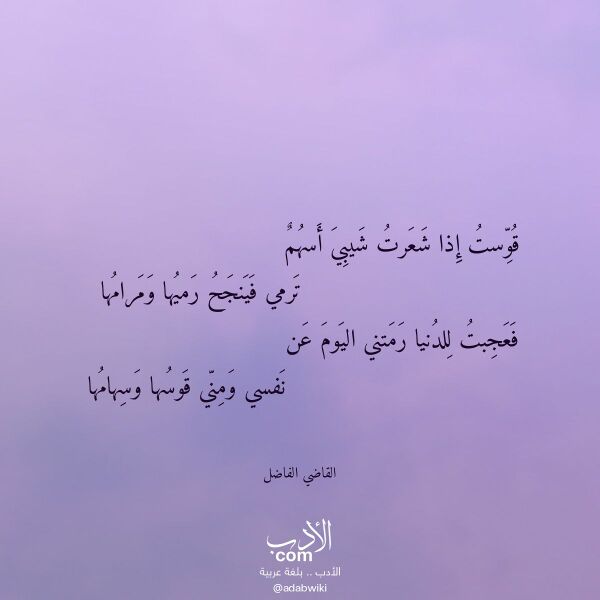 قُوِّستُ إِذا شَعَرتُ شَيبِيَ أَسهُمٌ
تَرمي فَيَنجَحُ رَميُها وَمَرامُها
فَعَجِبتُ لِلدُنيا رَمَتني اليَومَ عَن
نَفسي وَمِنّي قَوسُها وَسِهامُها
القاضي الفاضل
الأدب
.com
الأدب .. بلغة عربية
@adabwiki